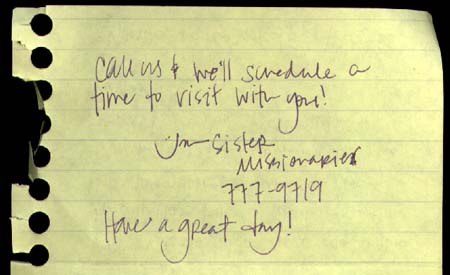 Call us & we'll schedule a
time to visit with you!
Your Sister
Missionaries
777-9719
Have a great day!